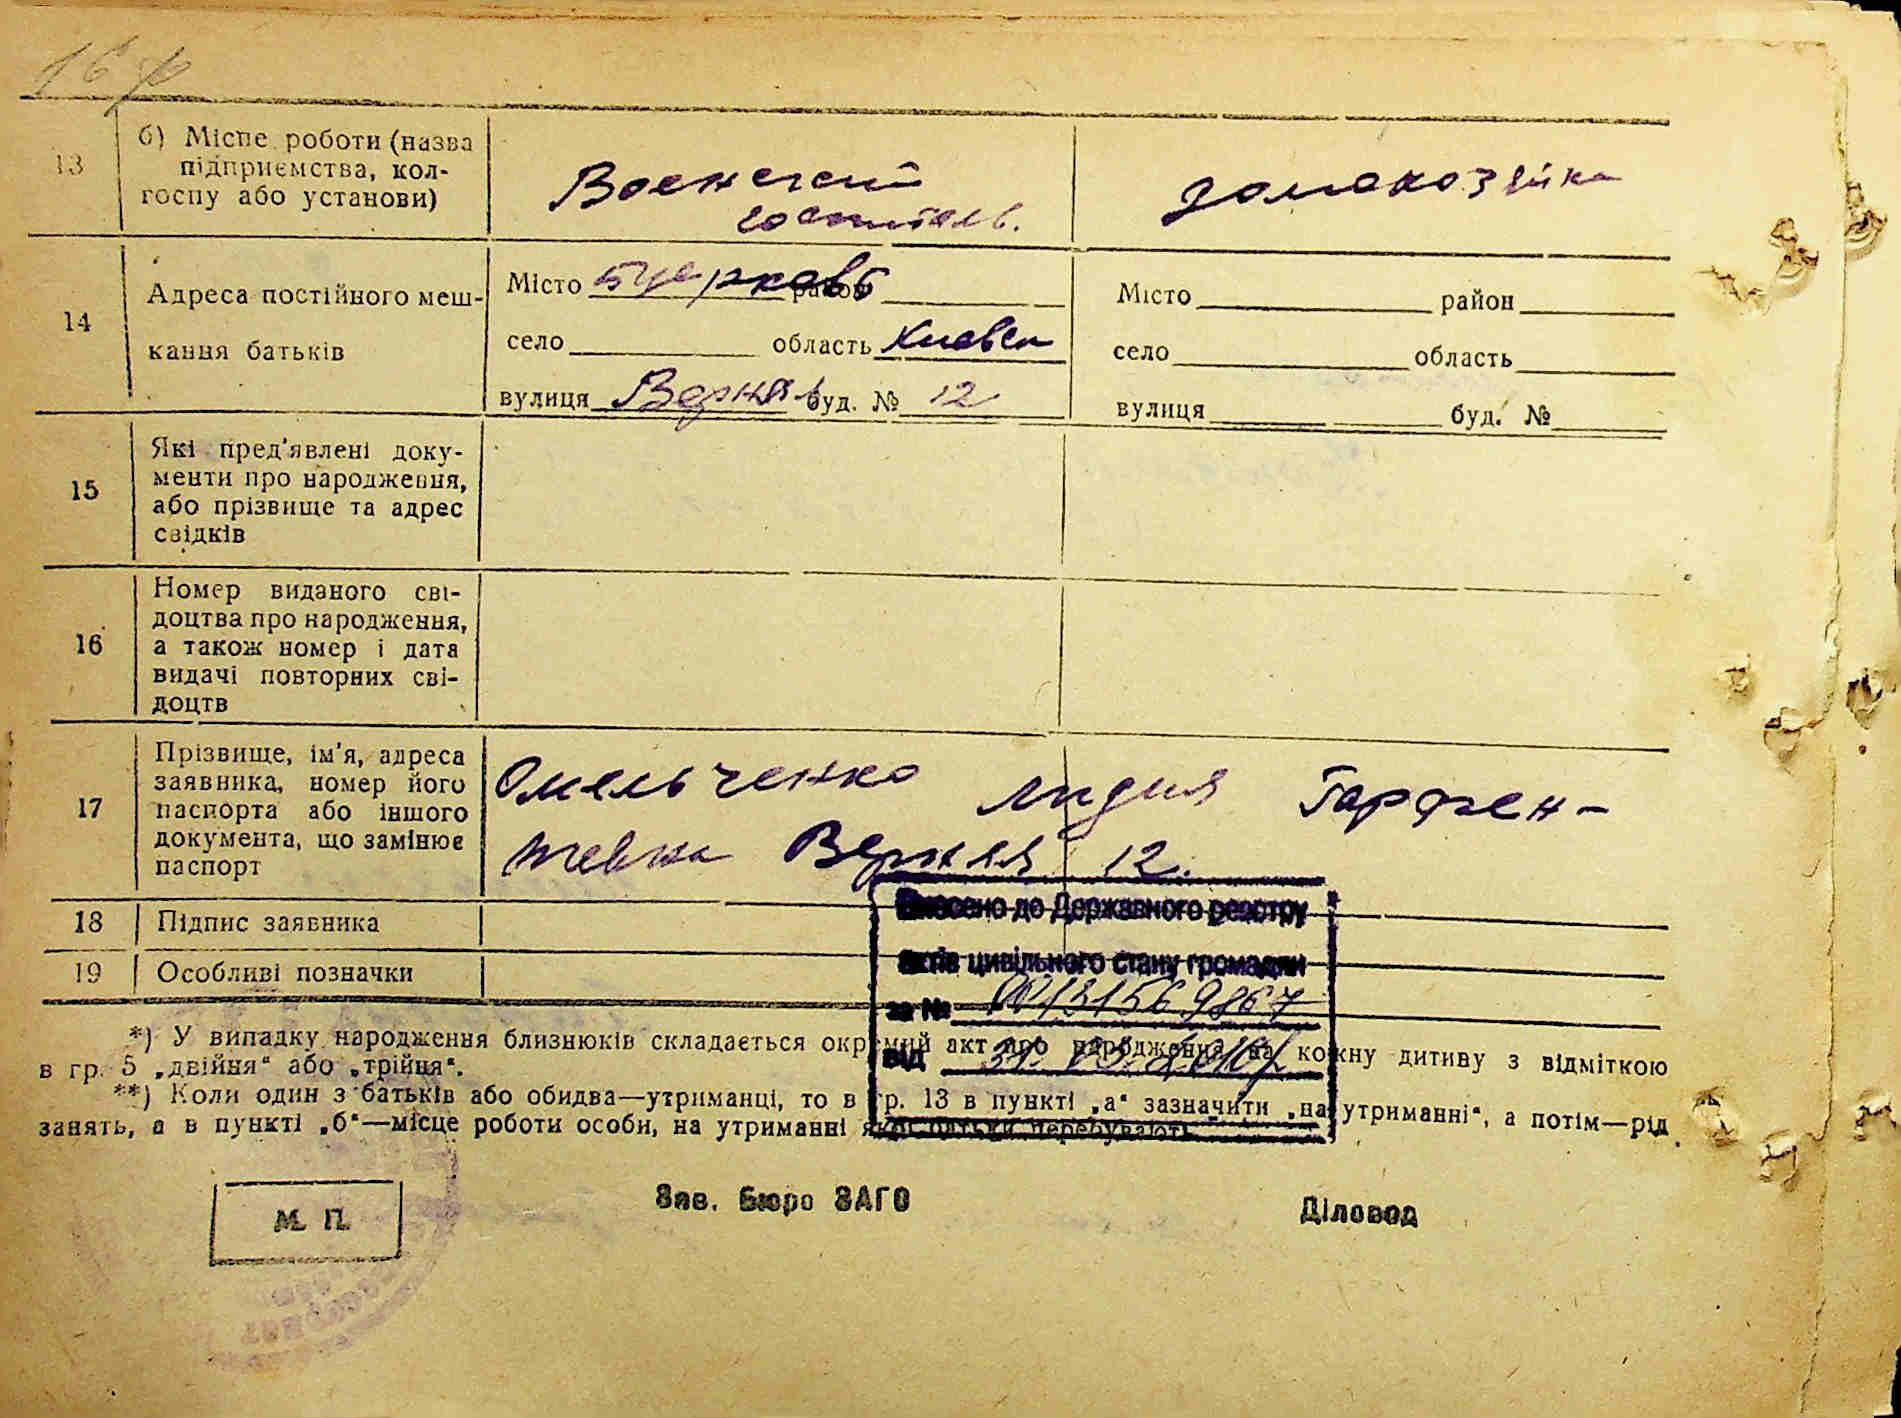 16
13
б) Місце роботи (назва
підприємства, кол-
госпу або установи)
Военный
госпиталь.
домохозяйка
14
Адреса постійного меш-
кання батьків
Місто Бцерковь район
село область Киевск
вулиця Верхня буд. № 12
Місто район
село область
вулиця буд. №
15
Які пред'явлені доку-
менти про народження,
або прізвище та адрес
свідків
16
Номер виданого сві-
доцтва про народження,
а також номер і дата
видачі повторних сві-
доцтв
17
Прізвище, ім'я, адреса
заявника, номер його
паспорта або іншого
документа, що замінює
паспорт
Омельченко Лидия
Верхняя 12.
18 Підпис заявника
19 Особливі позначки
Внесено до Державного реєстру
актів цивільного стану громадян
за № 00121569867
від
*) У випадку народження близнюків складається окремий акт про народження на кожну дитину з відміткою
в гр. 5 „двійня“ або „трійня“.
**) Коли один з батьків або обидва—утриманці, то в гр. 13 в пункті „а“ зазначити „на утриманні“, а потім—рід
занять, а в пункті „б“—місце роботи особи, на утриманні якої батьки перебувають
М. П.
Зав. Бюро ЗАГС
Діловод